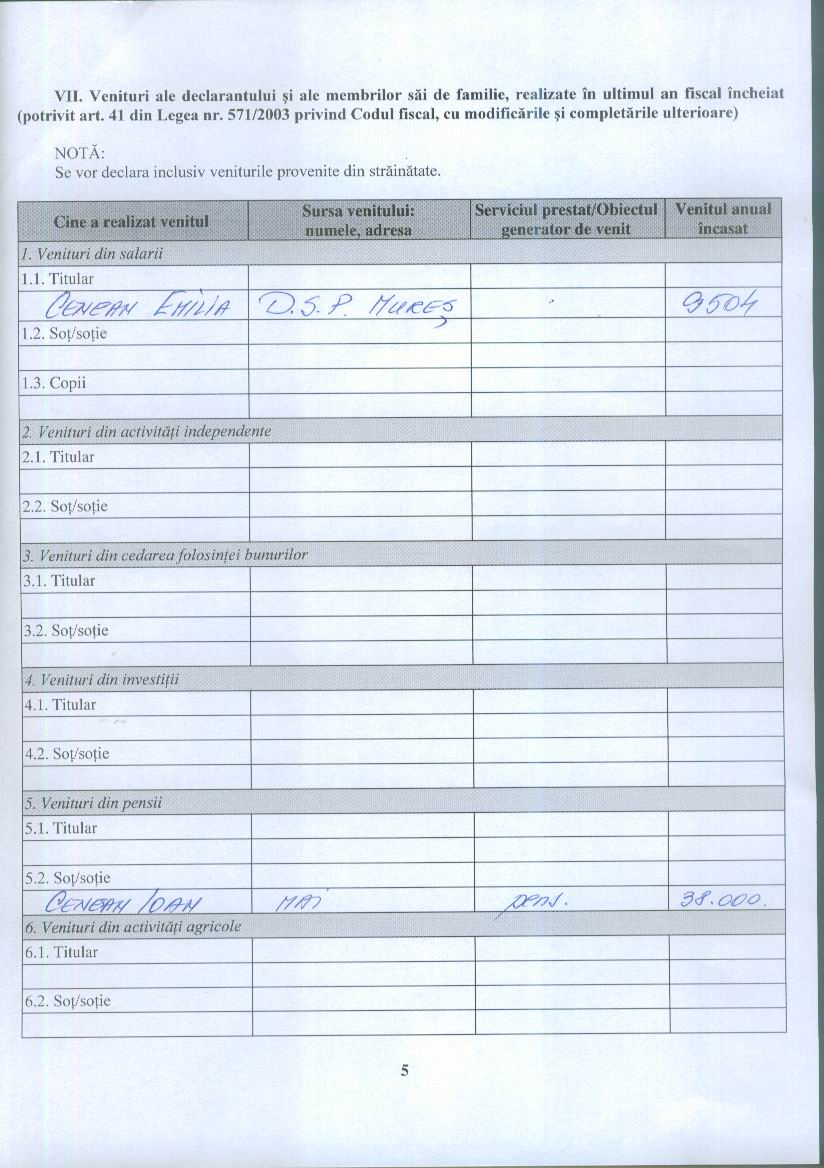 VII. Venituri ale declarantului şi ale membrilor săi de familie, realizate în ultimul an fiscal încheiat
(potrivit art. 41 din Legea nr. 571/2003 privind Codul fiscal, cu modificările şi completările ulterioare)
NOTĂ:
Se vor declara inclusiv veniturile provenite din străinătate.
Cine a realizat venitul | Sursa venitului: numele, adresa | Serviciul prestat/Obiectul generator de venit | Venitul anual încasat
1. Venituri din salarii
1.1. Titular
CENEAN EMILIA D.S.P. MUREŞ 9504
1.2. Soţ/soţie
1.3. Copii
2. Venituri din activităţi independente
2.1. Titular
2.2. Soţ/soţie
3. Venituri din cedarea folosinţei bunurilor
3.1. Titular
3.2. Soţ/soţie
4. Venituri din investiţii
4.1. Titular
4.2. Soţ/soţie
5. Venituri din pensii
5.1. Titular
5.2. Soţ/soţie
CENEAN IOAN MAI pens. 38.000.
6. Venituri din activităţi agricole
6.1. Titular
6.2. Soţ/soţie
5